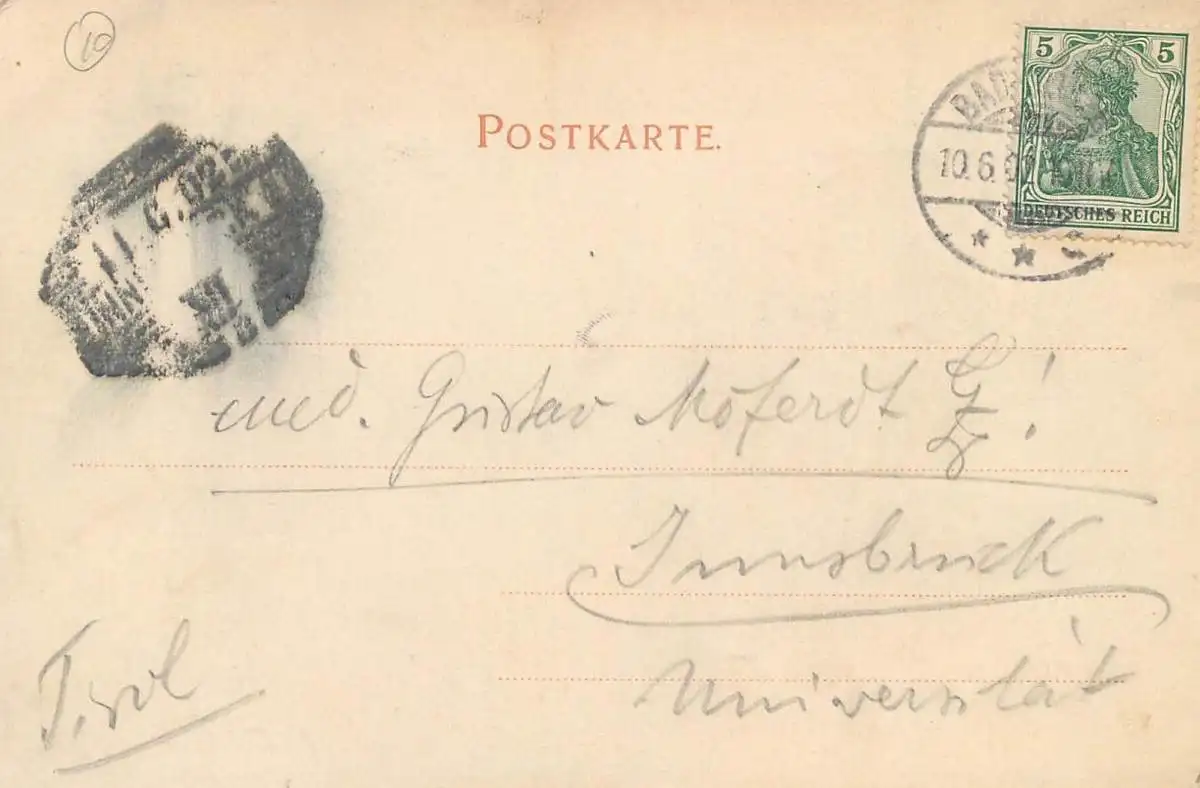 10
POSTKARTE.
5 5
DEUTSCHES REICH
BAD
10.6.
med. Gustav Moferdt
Innsbruck
Universität
Tirol